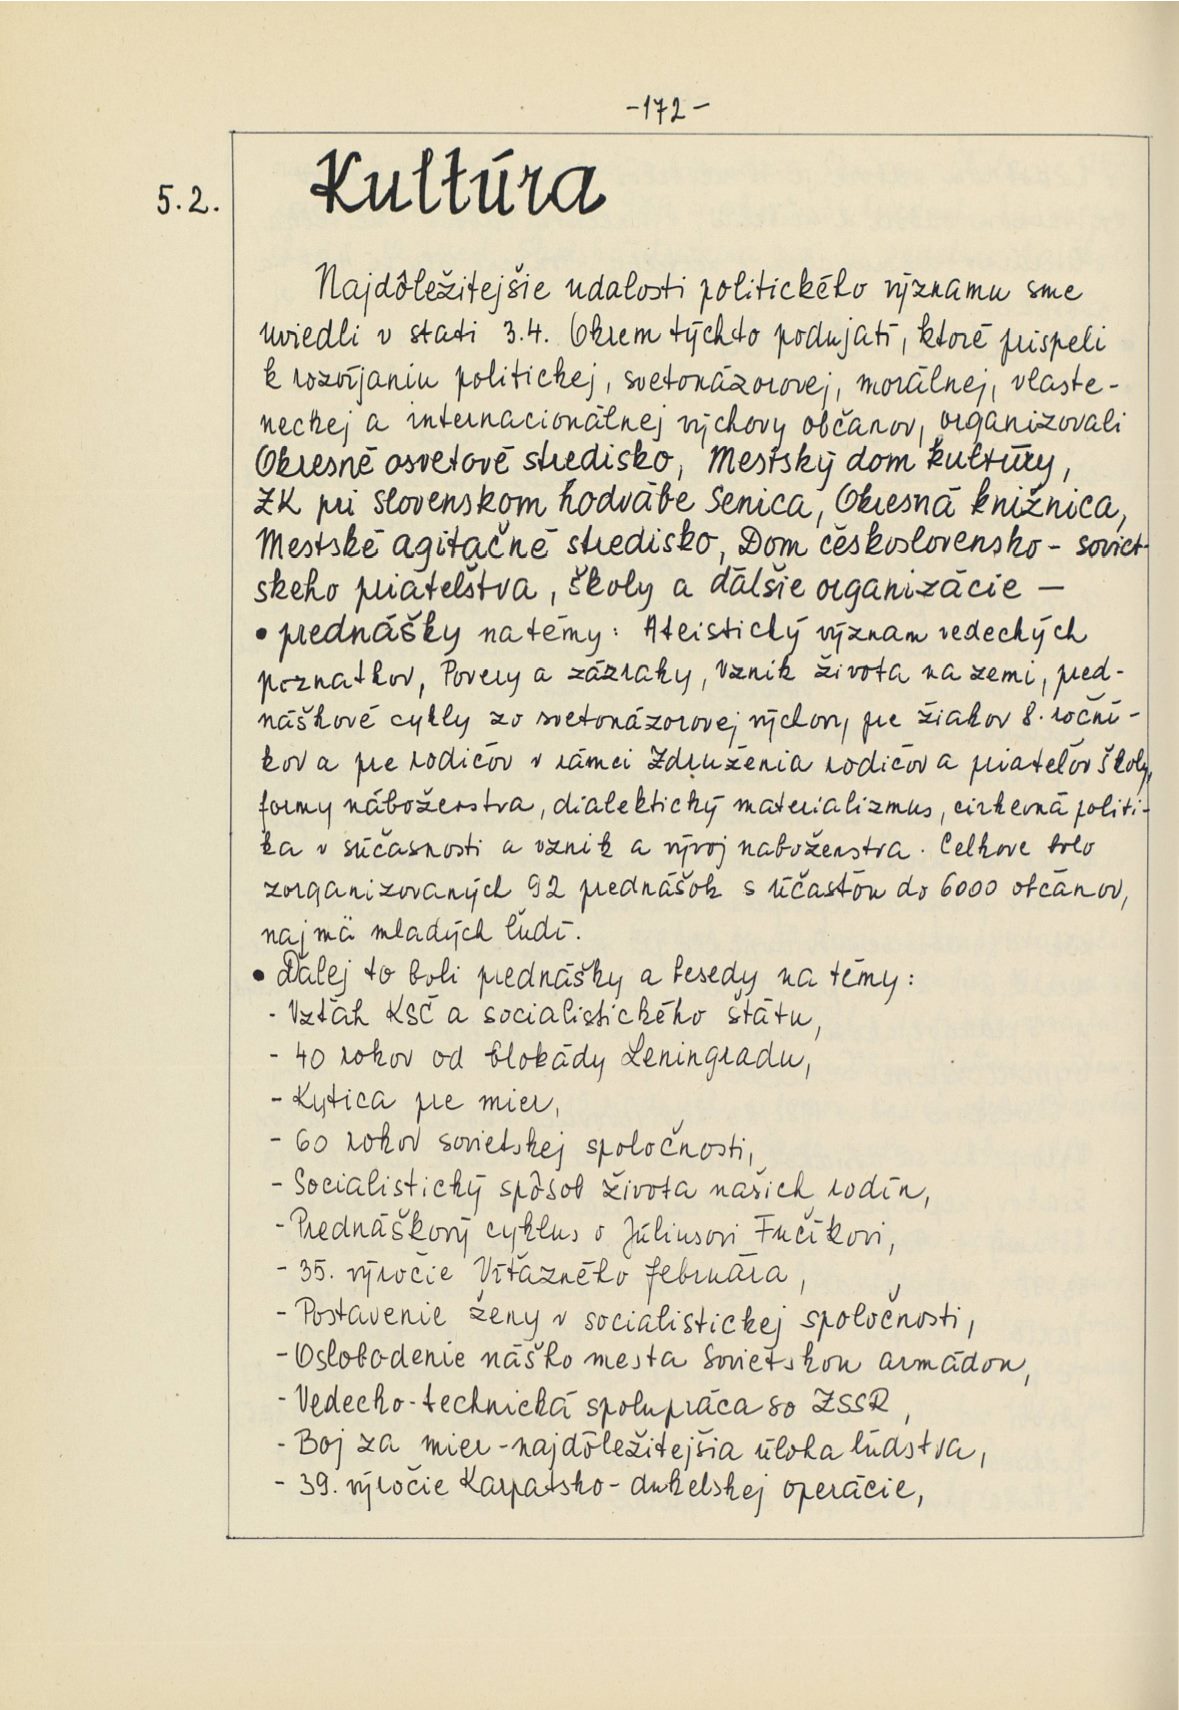 -172-
5.2. Kultúra
Najdôležitejšie udalosti politického významu sme
uviedli v stati 3.4. Okrem týchto podujatí, ktoré prispeli
k rozvíjaniu politickej, svetonázorovej, morálnej, vlaste-
neckej a internacionálnej výchovy občanov, organizovali
Okresné osvetové stredisko, Mestský dom kultúry,
ZK pri Slovenskom hodvábe Senica, Okresná knižnica,
Mestské agitačné stredisko, Dom československo-soviet-
skeho priateľstva, školy a ďalšie organizácie —
• prednášky na témy: Ateistický význam vedeckých
poznatkov, Povery a zázraky, Vznik života na zemi, pred-
náškové cykly zo svetonázorovej výchovy pre žiakov 8. roční-
kov a pre rodičov v rámci Združenia rodičov a priateľov školy,
formy náboženstva, dialektický materializmus, cirkevná politi-
ka v súčasnosti a vznik a vývoj naboženstva. Celkove bolo
zorganizovaných 92 prednášok s účasťou do 6000 občanov,
najmä mladých ľudí.
• Ďalej to boli prednášky a besedy na témy:
- Vzťah KSČ a socialistického štátu,
- 40 rokov od blokády Leningradu,
- Kytica pre mier,
- 60 rokov sovietskej spoločnosti,
- Socialistický spôsob života našich rodín,
- Prednáškový cyklus o Júliusovi Fučíkovi,
- 35. výročie Víťazného februára,
- Postavenie ženy v socialistickej spoločnosti,
- Oslobodenie nášho mesta Sovietskou armádou,
- Vedecko-technická spolupráca so ZSSR,
- Boj za mier - najdôležitejšia úloha ľudstva,
- 39. výročie Karpatsko-dukelskej operácie,